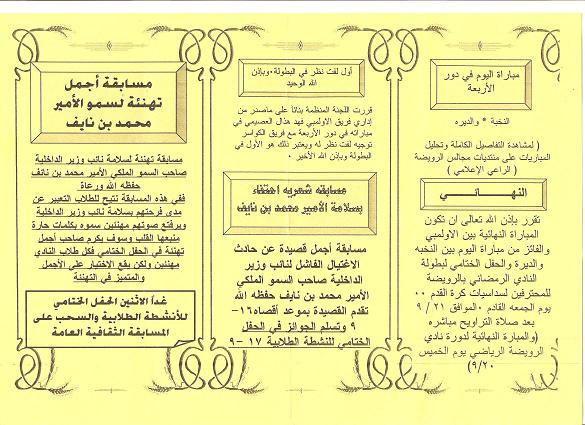 مباراة اليوم في دور
الأربعة
النخبة * والديره
( لمشاهدة التفاصيل الكاملة وتحليل
المباريات على منتديات مجالس الرويضة
( الراعي الإعلامي )
النهـــــــائي
تقرر بإذن الله تعالى ان تكون
المباراة النهائية بين الاولمبي
والفائز من مباراة اليوم بين النخبه
والديرة والحفل الختامي لبطولة
النادي الرمضاني بالرويضة
للمحترفين لسداسيات كرة القدم ٠٠
يوم الجمعه القادم ٠الموافق ٢١ / ٩
بعد صلاة التراويح مباشره
(والمبارة النهائية لدورة نادي
الرويضة الرياضي يوم الخميس
٩/٢٠)
أول لفت نظر في البطولة٠وبإذن
الله الوحيد
قررت اللجنة المنظمة بنائاً على ماصدر من
إداري فريق الاولمبي فهد هذال العصيمي في
مباراته في دور الأربعة مع فريق الكواسر
توجيه لفت نظر له ويعتبر ذلك هو الأول في
البطولة وبإذن الله الأخير ٠
مسابقه شعريه احتفاء
بسلامة الأمير محمد بن نايف
مسابقة أجمل قصيدة عن حادث
الاغتيال الفاشل لنائب وزير
الداخلية صاحب السمو الملكي
الأمير محمد بن نايف حفظه الله
تقدم القصيدة بموعد أقصاه١٦-
٩ وتسلم الجوائز في الحفل
الختامي للنشطة الطلابية ١٧ -٩
مسابقة أجمل
تهنئة لسمو الأمير
محمد بن نايف
مسابقة تهنئة لسلامة نائب وزير الداخلية
صاحب السمو الملكي الأمير محمد بن نايف
حفظه الله ورعاة
ففي هذه المسابقة نتيح للطلاب التعبير عن
مدى فرحتهم بسلامة نائب وزير الداخلية
ويرفتع صوتهم مهنئين سموه بكلمات حارة
منبعها القلب وسوف يكرم صاحب أجمل
تهنئة في الحفل الختامي فكل طلاب النادي
مهنئين ولكن يقع الإختيار على الأجمل
والمتميز في التهنئة
غداً الاثنين الحفل الختامي
للأنشطة الطلابية والسحب على
المسابقة الثقافية العامة